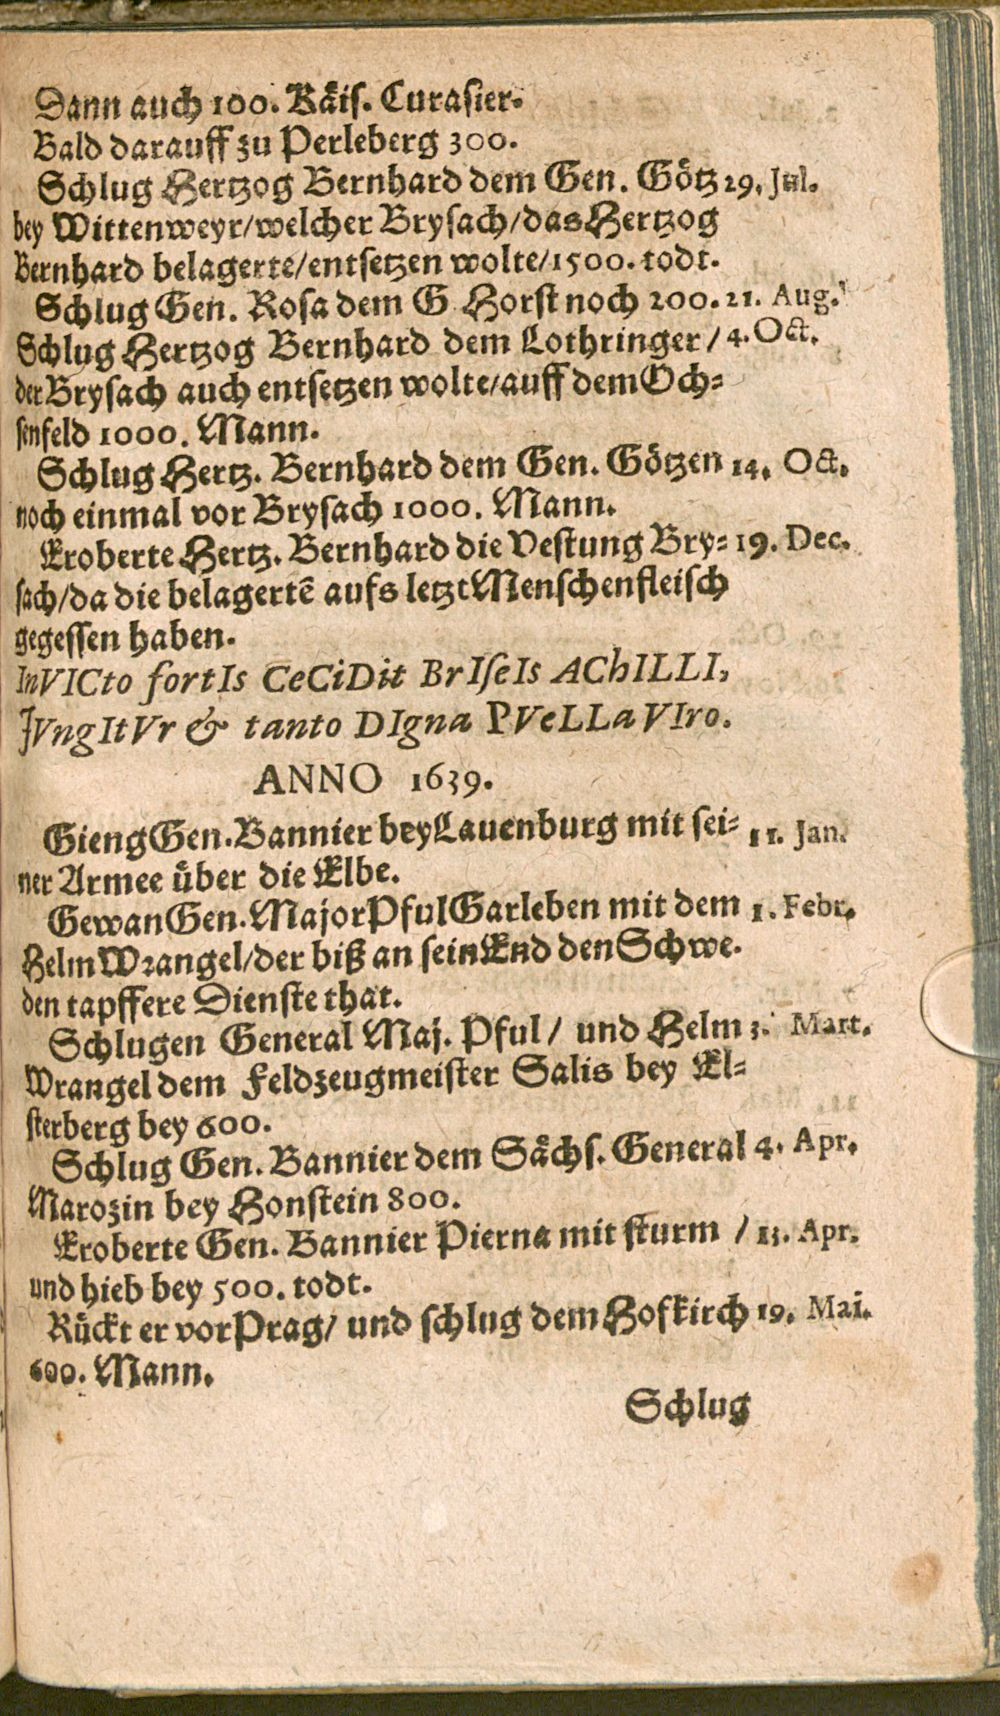 Dann auch 100. Käis. Curasier.
Bald darauff zu Perleberg 300.
Schlug Hertzog Bernhard dem Gen. Götz 29. Jul.
bey Wittenweyr/welcher Brysach/das Hertzog
Bernhard belagerte/entsetzen wolte/1500. todt.
Schlug Gen. Rosa dem G Horst noch 200. 21. Aug.
Schlug Hertzog Bernhard dem Lothringer / 4. Oct.
der Brysach auch entsetzen wolte/auff dem Och-
senfeld 1000. Mann.
Schlug Hertz. Bernhard dem Gen. Götzen 14. Oct.
noch einmal vor Brysach 1000. Mann.
Eroberte Hertz. Bernhard die Vestung Bry- 19. Dec.
sach/da die belagertē aufs letzt Menschenfleisch
gegessen haben.
InVICto fortIs CeCiDit BrIseIs AChILLI,
JVngItVr & tanto DIgna PVeLLa VIro.
ANNO 1639.
Gieng Gen. Bannier bey Lauenburg mit sei- 11. Jan.
ner Armee über die Elbe.
Gewan Gen. Major Pful Garleben mit dem 1. Febr.
Helm Wrangel/der biß an sein End den Schwe.
den tapffere Dienste that.
Schlugen General Maj. Pful / und Helm 3. Mart.
Wrangel dem Feldzeugmeister Salis bey El-
sterberg bey 600.
Schlug Gen. Bannier dem Sächs. General 4. Apr.
Marozin bey Honstein 800.
Eroberte Gen. Bannier Pierna mit sturm / 13. Apr.
und hieb bey 500. todt.
Rückt er vor Prag/ und schlug dem Hofkirch 19. Mai.
600. Mann.
Schlug